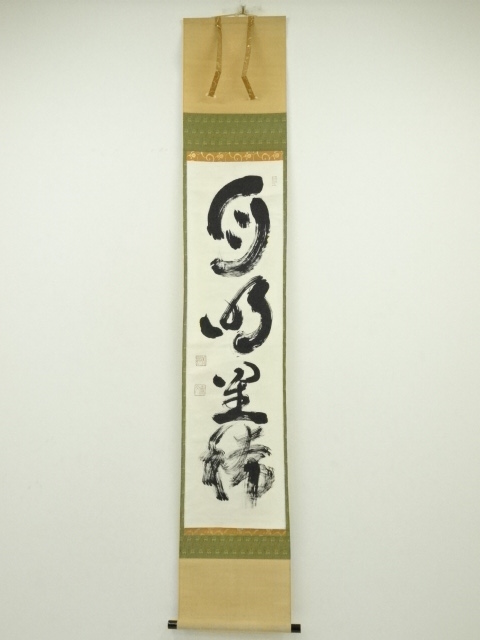 月明星稀